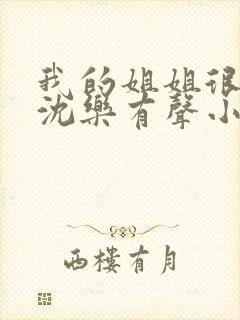 我的姐姐很
沈樂有聲小
西樓有月